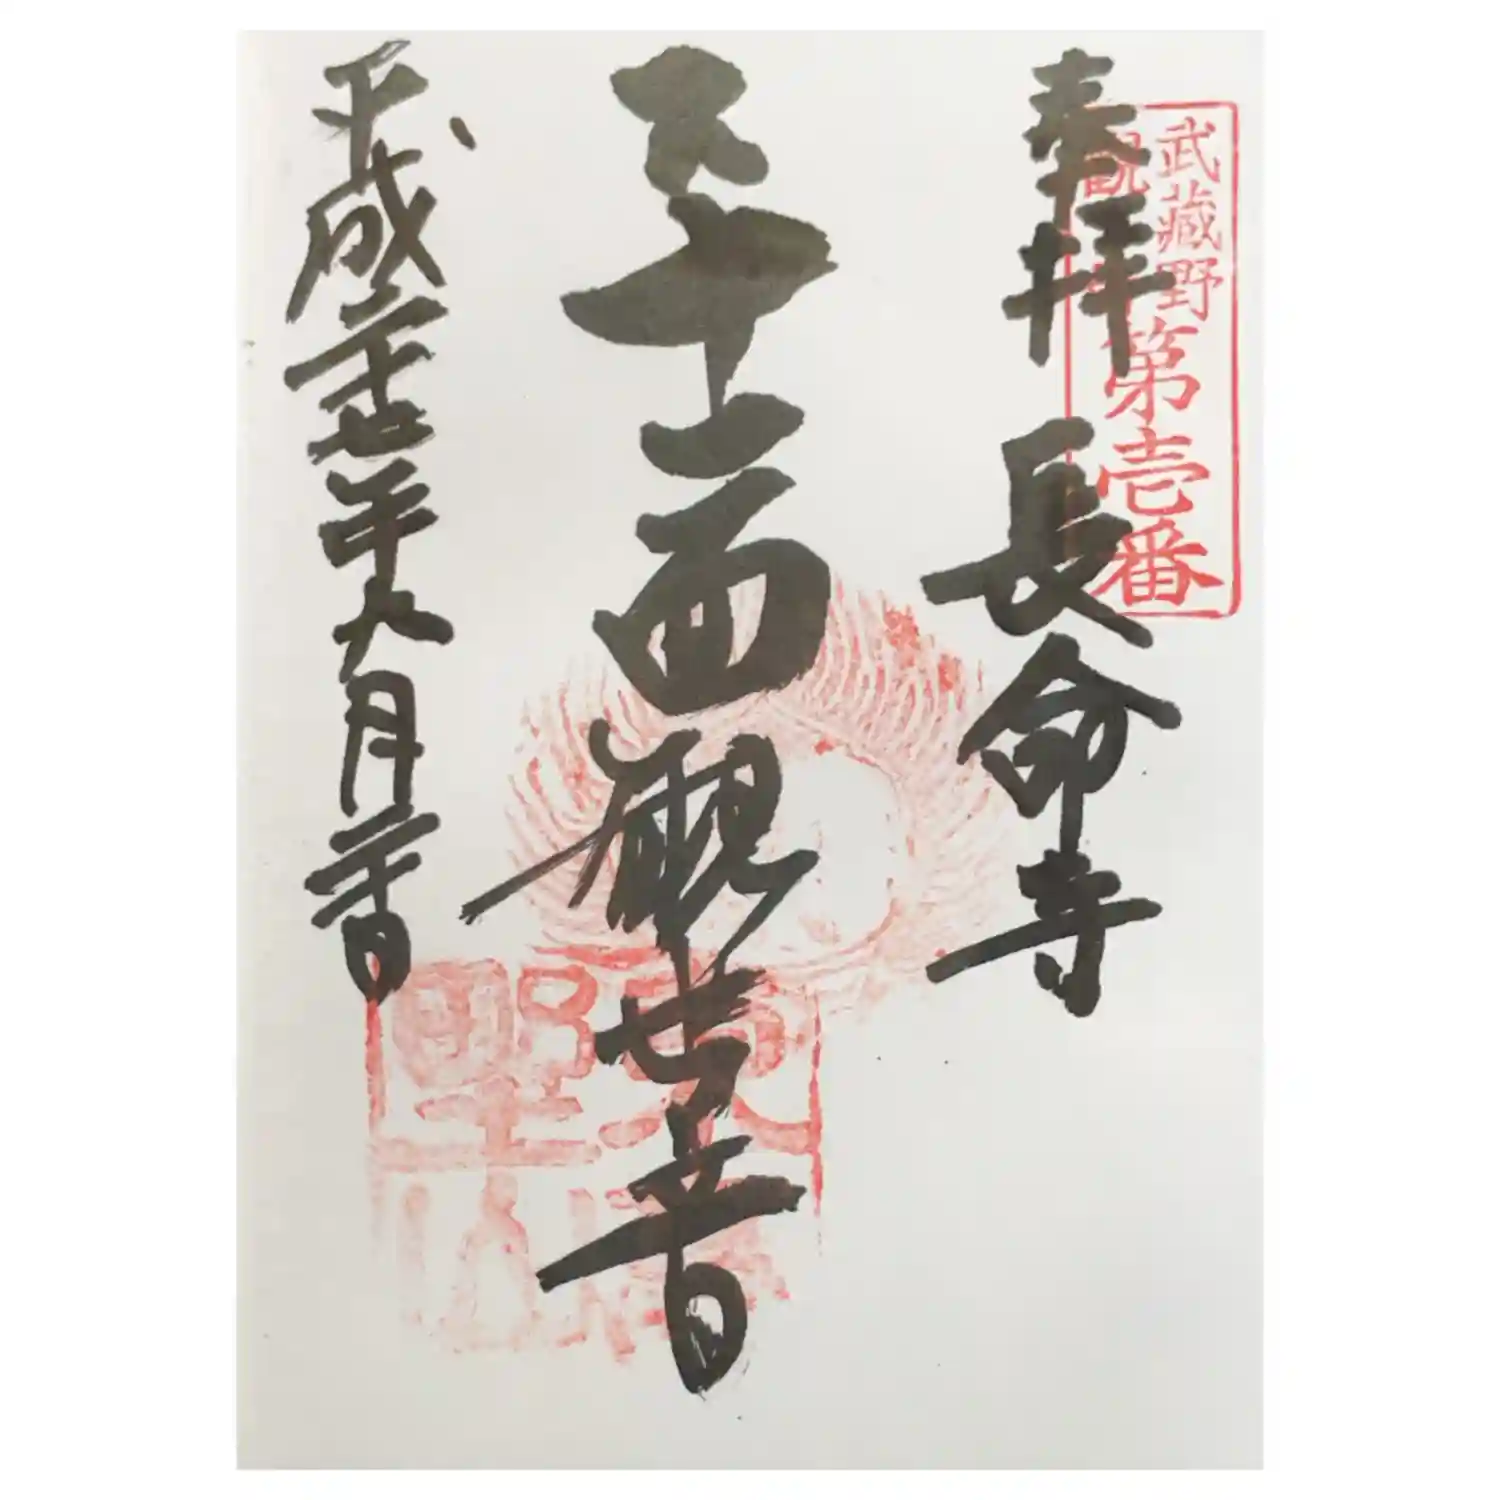 武蔵野
観音
第壱番
奉拝 長命寺
十一面観世音
平成二十七年九月二十日